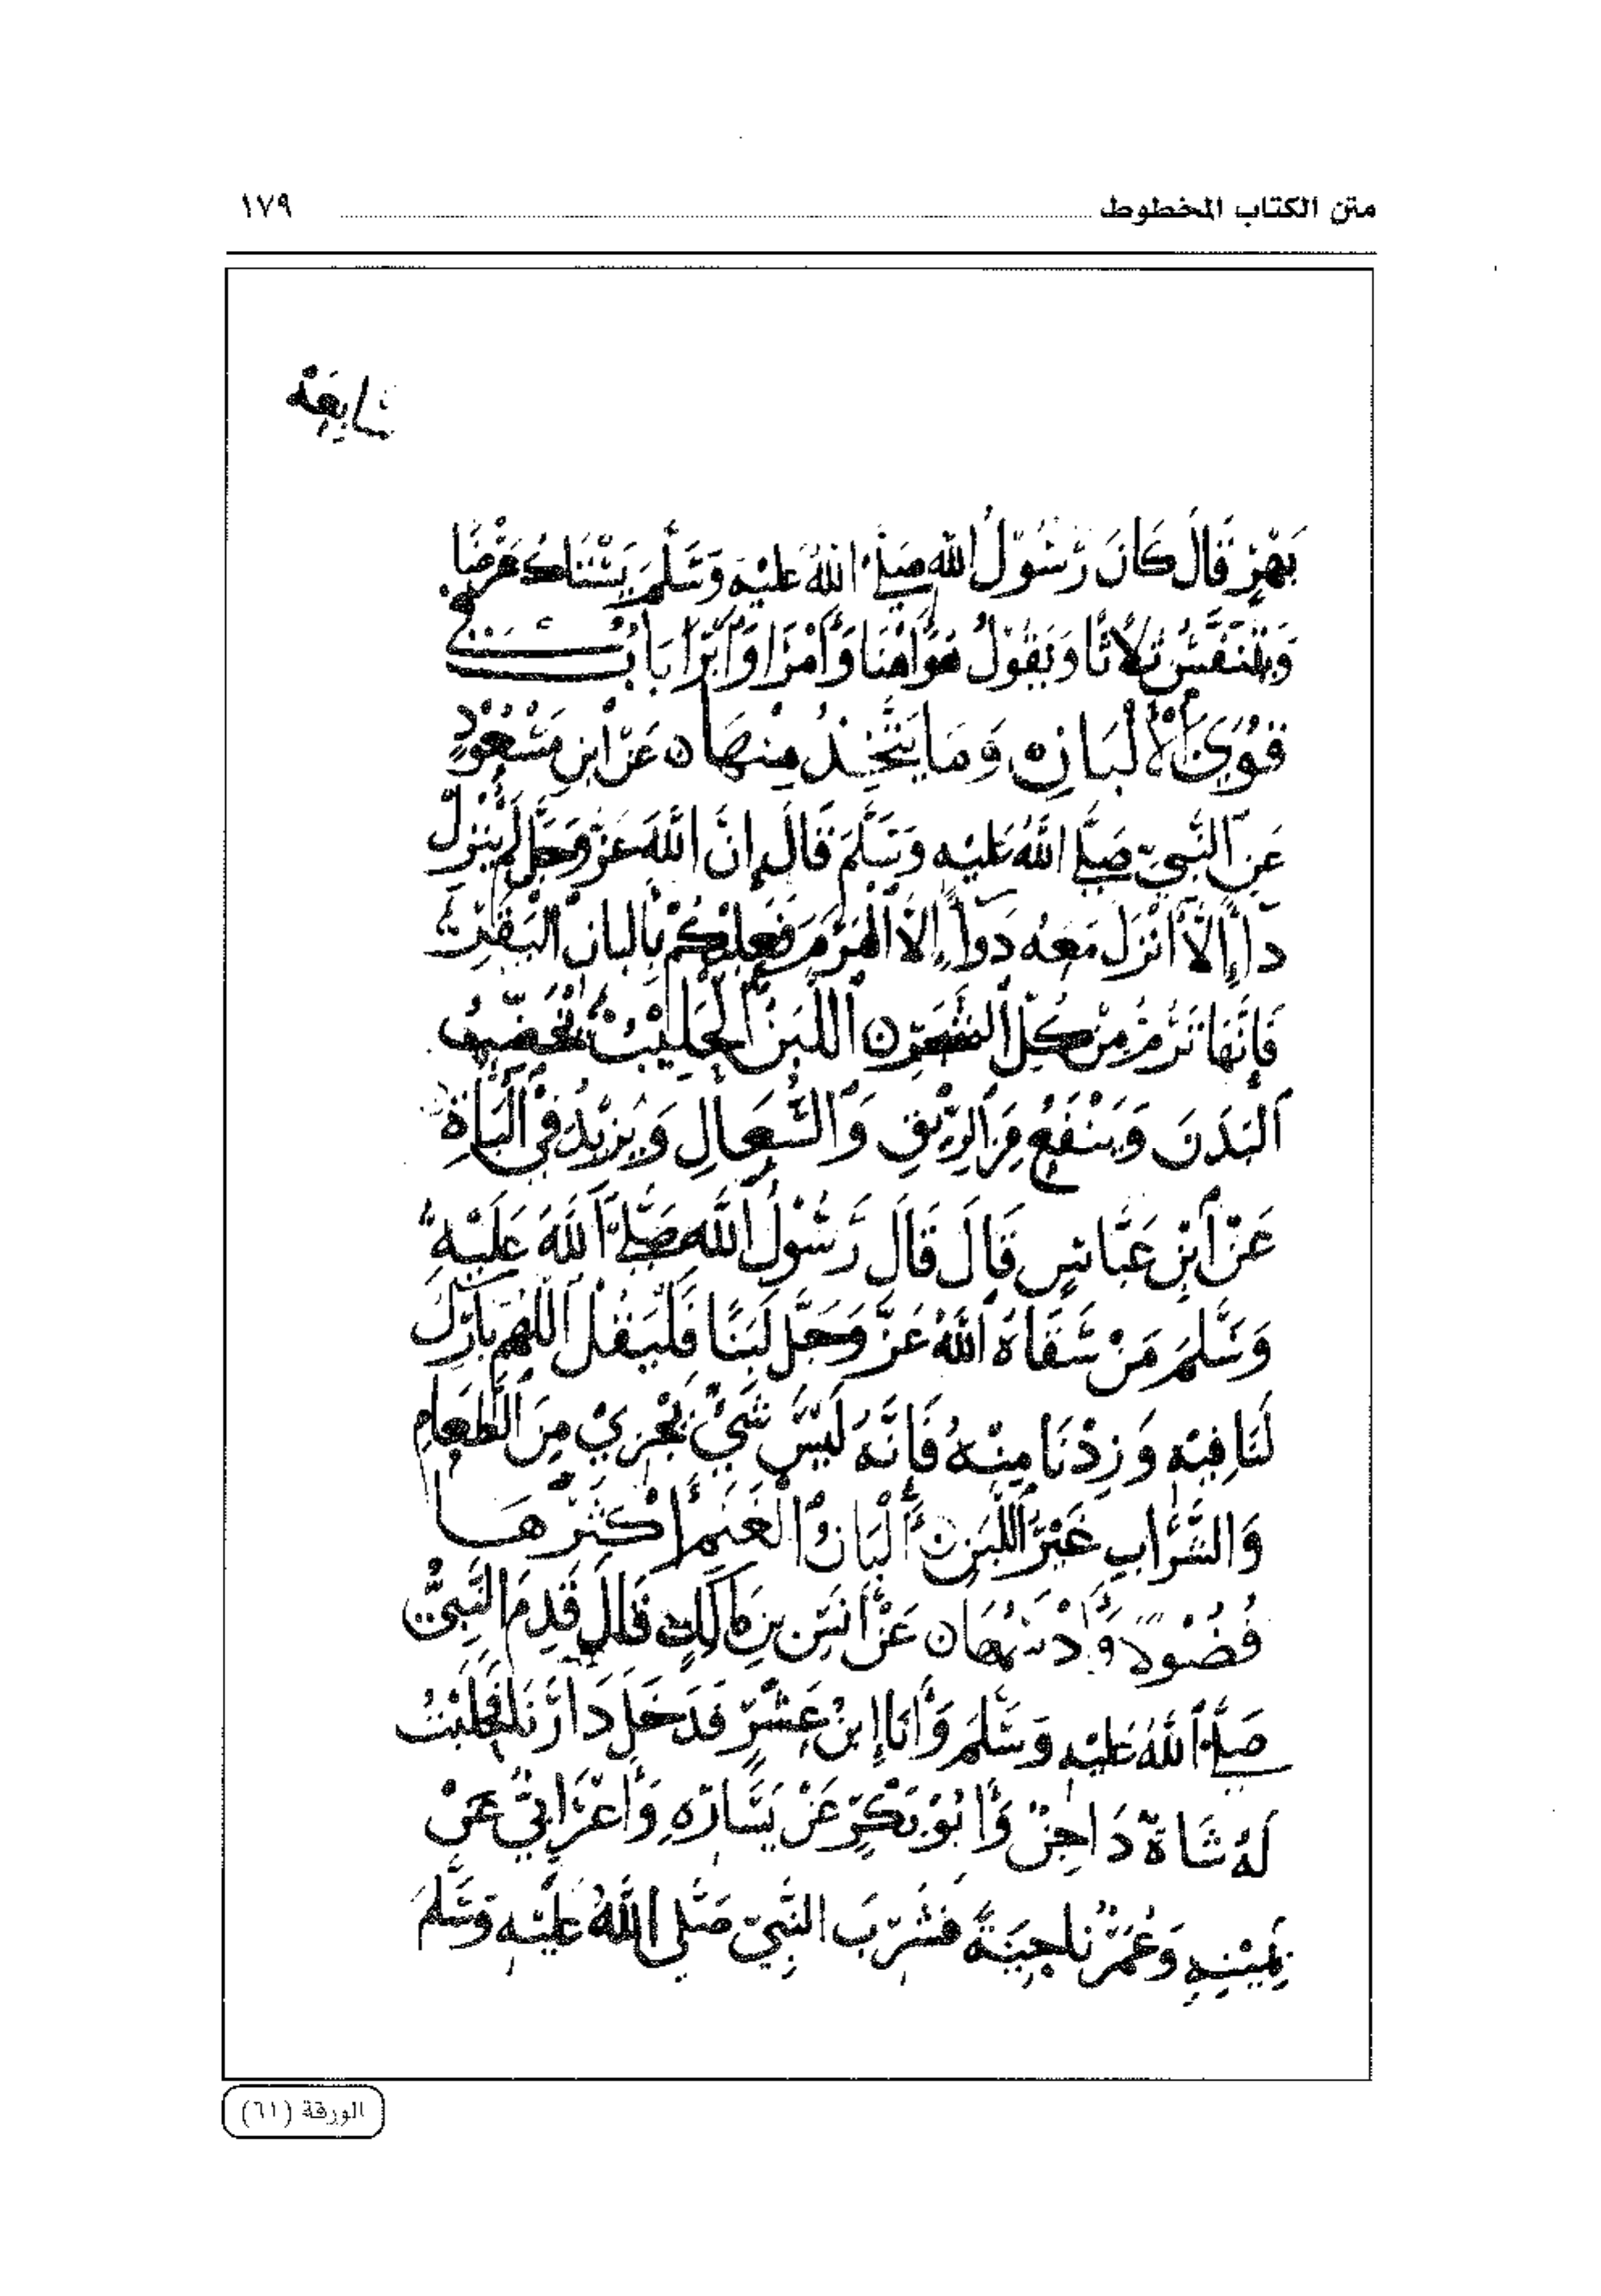 متن الكتاب المخطوط ١٧٩
بَهْزٍ قَالَ كَانَ رَسُوْلُ اللهِ صَلَّى اللهُ عَلَيْهِ وَسَلَّمَ يَسْتَاكُ عَرْضًا
وَيَتَنَفَّسُ ثَلَاثًا وَيَقُوْلُ هُوَ اَهْنَا وَأَمْرَا وَأَبْرَا بَابُ فِي
قُوَى الْأَلْبَانِ وَمَا يُتَّخِذُ مِنْهَا ه عَنْ ابْنِ مَسْعُوْدٍ
عَنِ النَّبِيِّ صَلَّى اللَّهُ عَلَيْهِ وَسَلَّمَ قَالَ إِنَّ اللَّهَ عَزَّ وَجَلَّ لَمْ يُنْزِلْ
دَاءً إِلَّا أَنْزَلَ مَعَهُ دَوَاءً إِلَّا الْهَرَمَ فَعَلَيْكُمْ بِأَلْبَانِ الْبَقَرِ
فَإِنَّهَا تَرُمُّ مِنْ كُلِّ الشَّجَرِ ن اللَّبَنُ الْحَلِيْبُ يُخَصِّبُ
الْبَدَنَ وَيَنْفَعُ مِنَ الرِّيْقِ وَالسُّعَالِ وَيَزِيْدُ فِي الْبَاةِ
عَنْ ابْنِ عَبَّاسٍ قَالَ قَالَ رَسُوْلُ اللَّهِ صَلَّى اللَّهُ عَلَيْهِ
وَسَلَّمَ مَنْ سَقَاهُ اللَّهُ عَزَّ وَجَلَّ لَبَنًا فَلْيَقُلْ اللَّهُمَّ بَارِكْ
لَنَا فِيْهِ وَزِدْنَا مِنْهُ فَإِنَّهُ لَيْسَ شَيْ يُجْزِيْ مِنَ الطَّعَامِ
وَالشَّرَابِ غَيْرَ اللَّبَنِ ن أَلْبَانُ الْغَنَمِ أَكْثَرُهَا
فُضُوْلًا وَأَدْسَمُهَا ن عَنْ أَنَسِ بْنِ مَالِكٍ قَالَ قَدِمَ النَّبِيُّ
صَلَّى اللَّهُ عَلَيْهِ وَسَلَّمَ وَأَنَا إِبْنُ عَشْرٍ فَدَخَلَ دَارَنَا فَحَلَبْتُ
لَهُ شَاةً دَاجِنٌ وَأَبُوْ بَكْرٍ عَنْ يَسَارِهِ وَأَعْرَابِيٌّ عَنْ
يَمِيْنِهِ وَعُمَرُ نَاحِيَةً فَشَرِبَ النَّبِيُّ صَلَّى اللَّهُ عَلَيْهِ وَسَلَّمَ
الورقة (٦١)